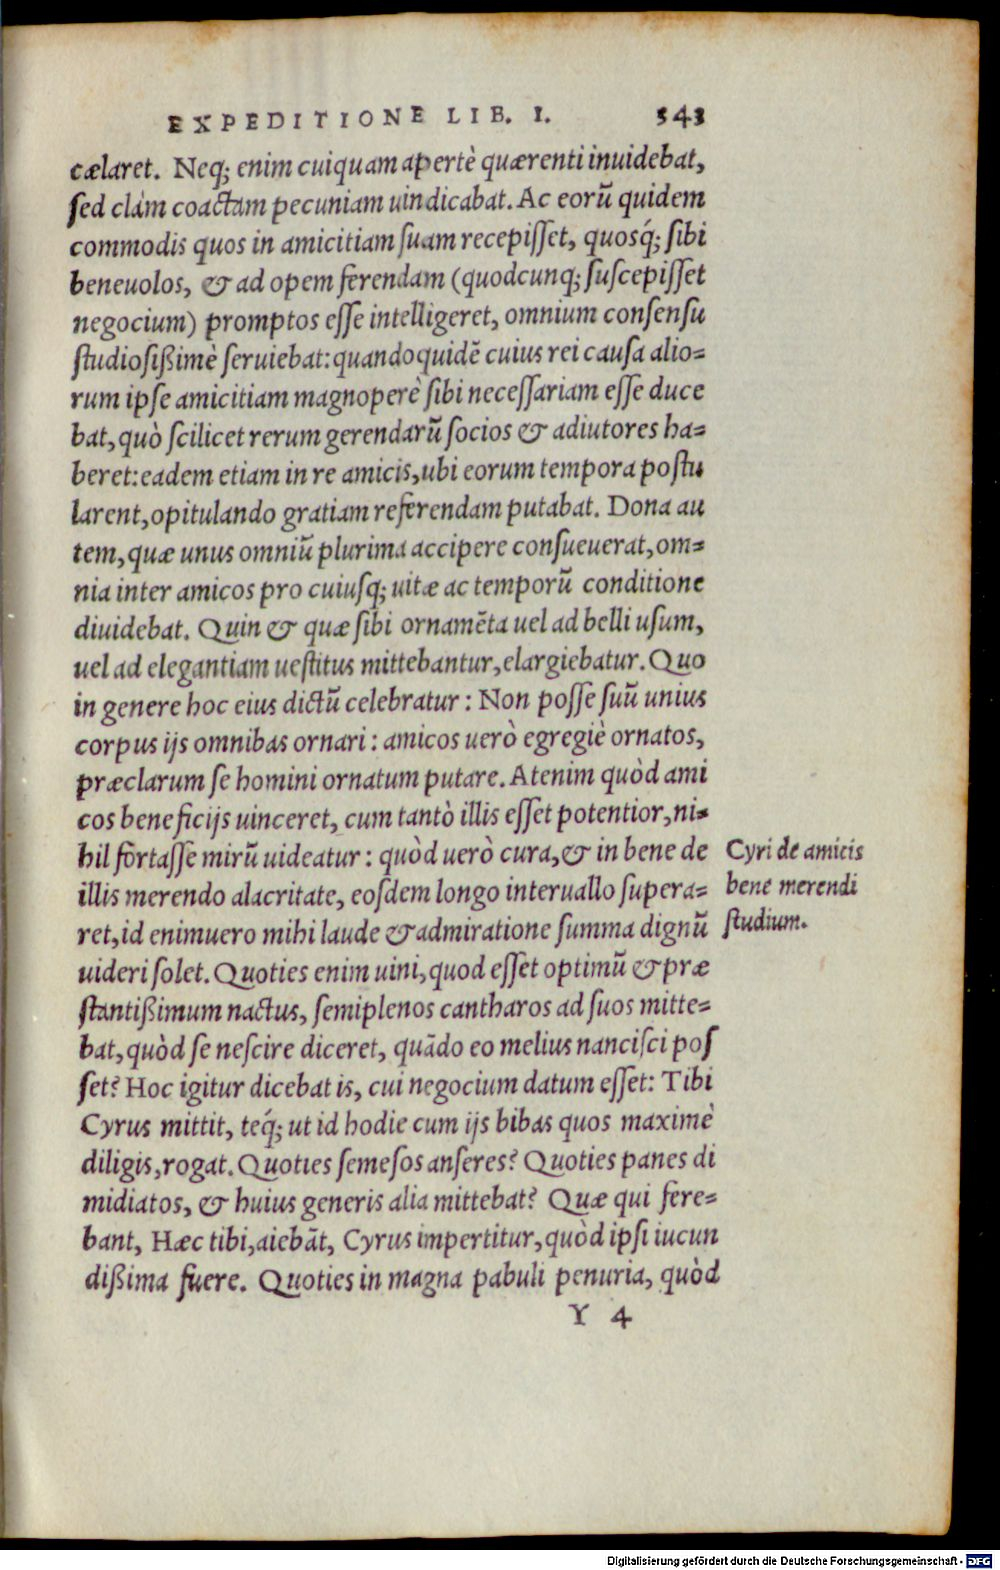 EXPEDITIONE LIB. I. 343
cælaret. Neq; enim cuiquam apertè quærenti inuidebat,
sed clàm coactam pecuniam uindicabat. Ac eorũ quidem
commodis quos in amicitiam suam recepisset, quosq́; sibi
beneuolos, & ad opem ferendam (quodcunq; suscepisset
negocium) promptos esse intelligeret, omnium consensu
studiosißimè seruiebat: quandoquidẽ cuius rei causa alio=
rum ipse amicitiam magnoperè sibi necessariam esse duce
bat, quò scilicet rerum gerendarũ socios & adiutores ha=
beret: eadem etiam in re amicis, ubi eorum tempora postu
larent, opitulando gratiam referendam putabat. Dona au
tem, quæ unus omniũ plurima accipere consueuerat, om=
nia inter amicos pro cuiusq; uitæ ac temporũ conditione
diuidebat. Quin & quæ sibi ornamẽta uel ad belli usum,
uel ad elegantiam uestitus mittebantur, elargiebatur. Quo
in genere hoc eius dictũ celebratur: Non posse suũ unius
corpus ijs omnibas ornari: amicos uerò egregiè ornatos,
præclarum se homini ornatum putare. Atenim quòd ami
cos beneficijs uinceret, cum tantò illis esset potentior, ni=
hil fortasse mirũ uideatur: quòd uerò cura, & in bene de
illis merendo alacritate, eosdem longo interuallo supera=
ret, id enimuero mihi laude & admiratione summa dignũ
uideri solet. Quoties enim uini, quod esset optimũ & præ
stantißimum nactus, semiplenos cantharos ad suos mitte=
bat, quòd se nescire diceret, quãdo eo melius nancisci pos
set? Hoc igitur dicebat is, cui negocium datum esset: Tibi
Cyrus mittit, teq́; ut id hodie cum ijs bibas quos maximè
diligis, rogat. Quoties semesos anseres? Quoties panes di
midiatos, & huius generis alia mittebat? Quæ qui fere=
bant, Hæc tibi, aiebãt, Cyrus impertitur, quòd ipsi iucun
dißima fuere. Quoties in magna pabuli penuria, quòd
Y 4
Cyri de amicis
bene merendi
studium.
Digitalisierung gefördert durch die Deutsche Forschungsgemeinschaft - DFG